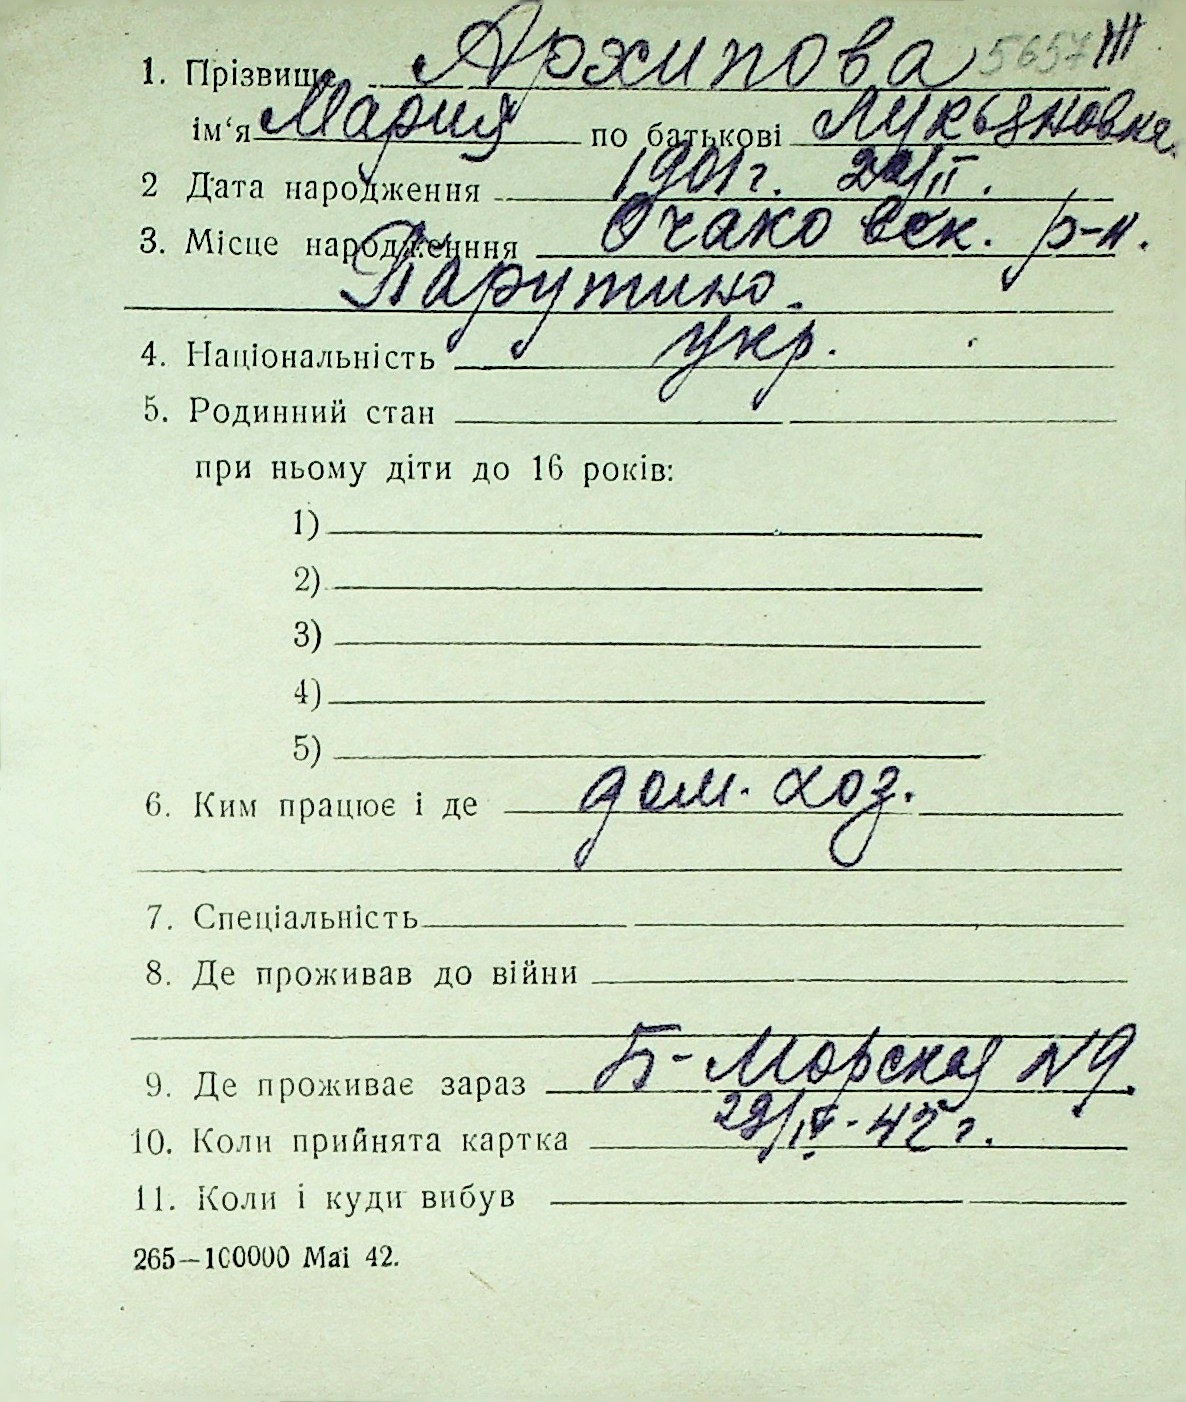 1. Прізвище Архипова 5657 III
ім'я Мария по батькові Лукьяновна
2 Дата народження 1901 г. /II.
3. Місце народженння Очаковск. р-н.
Парутино.
4. Національність укр.
5. Родинний стан
при ньому діти до 16 років:
1)
2)
3)
4)
5)
6. Ким працює і де дом. хоз.
7. Спеціальність
8. Де проживав до війни
9. Де проживає зараз Б-Морская N 9.
10. Коли прийнята картка 29/IV-45 г.
11. Коли і куди вибув
265—100000 Маі 42.